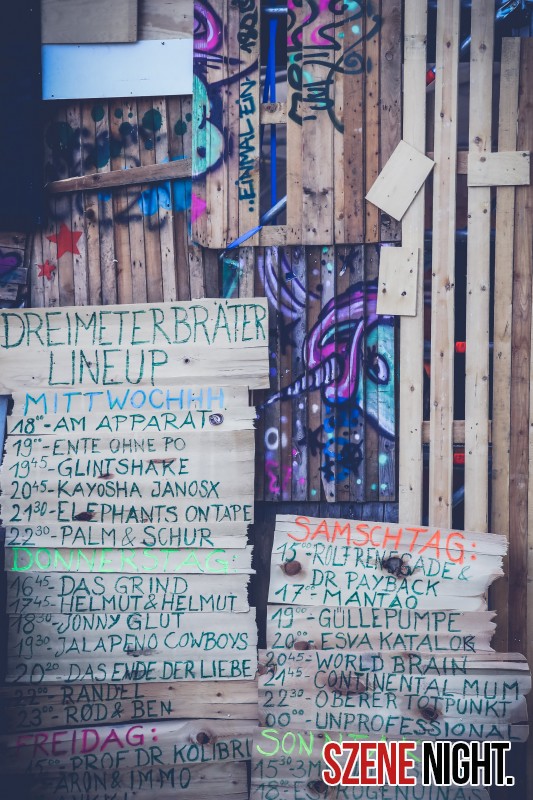 ..EINMAL EIN
DREIMETERBRÄTER
LINEUP
MITTWOCHHH
18⁰⁰-AM APPARAT
19⁰⁰-ENTE OHNE PO
19⁴⁵-GLINTSHAKE
20⁴⁵-KAYOSHA JANOSX
21³⁰-ELEPHANTS ON TAPE
22³⁰-PALM & SCHUR
DONNERSTAG:
16⁴⁵-DAS GRIND
17⁴⁵-HELMUT & HELMUT
18³⁰-JONNY GLUT
19³⁰-JALAPENO COWBOYS
20²⁰-DAS ENDE DER LIEBE
22⁰⁰-RANDEL
23⁰⁰-RØD & BEN
FREITAG:
15⁰⁰-PROF DR KOLIBRI
ARON & IMMO
SAMSCHTAG:
15⁰⁰ROLF RENEGADE &
DR PAYBACK
17⁰⁰-MANTAO
19⁰⁰-GÜLLEPUMPE
20⁰⁰-ESVA KATALOK
20⁴⁵-WORLD BRAIN
21⁴⁵-CONTINENTAL MUM
22³⁰-OBERER TOTPUNKT
00⁰⁰-UNPROFESSIONAL
15³⁰-3M
SZENE NIGHT.